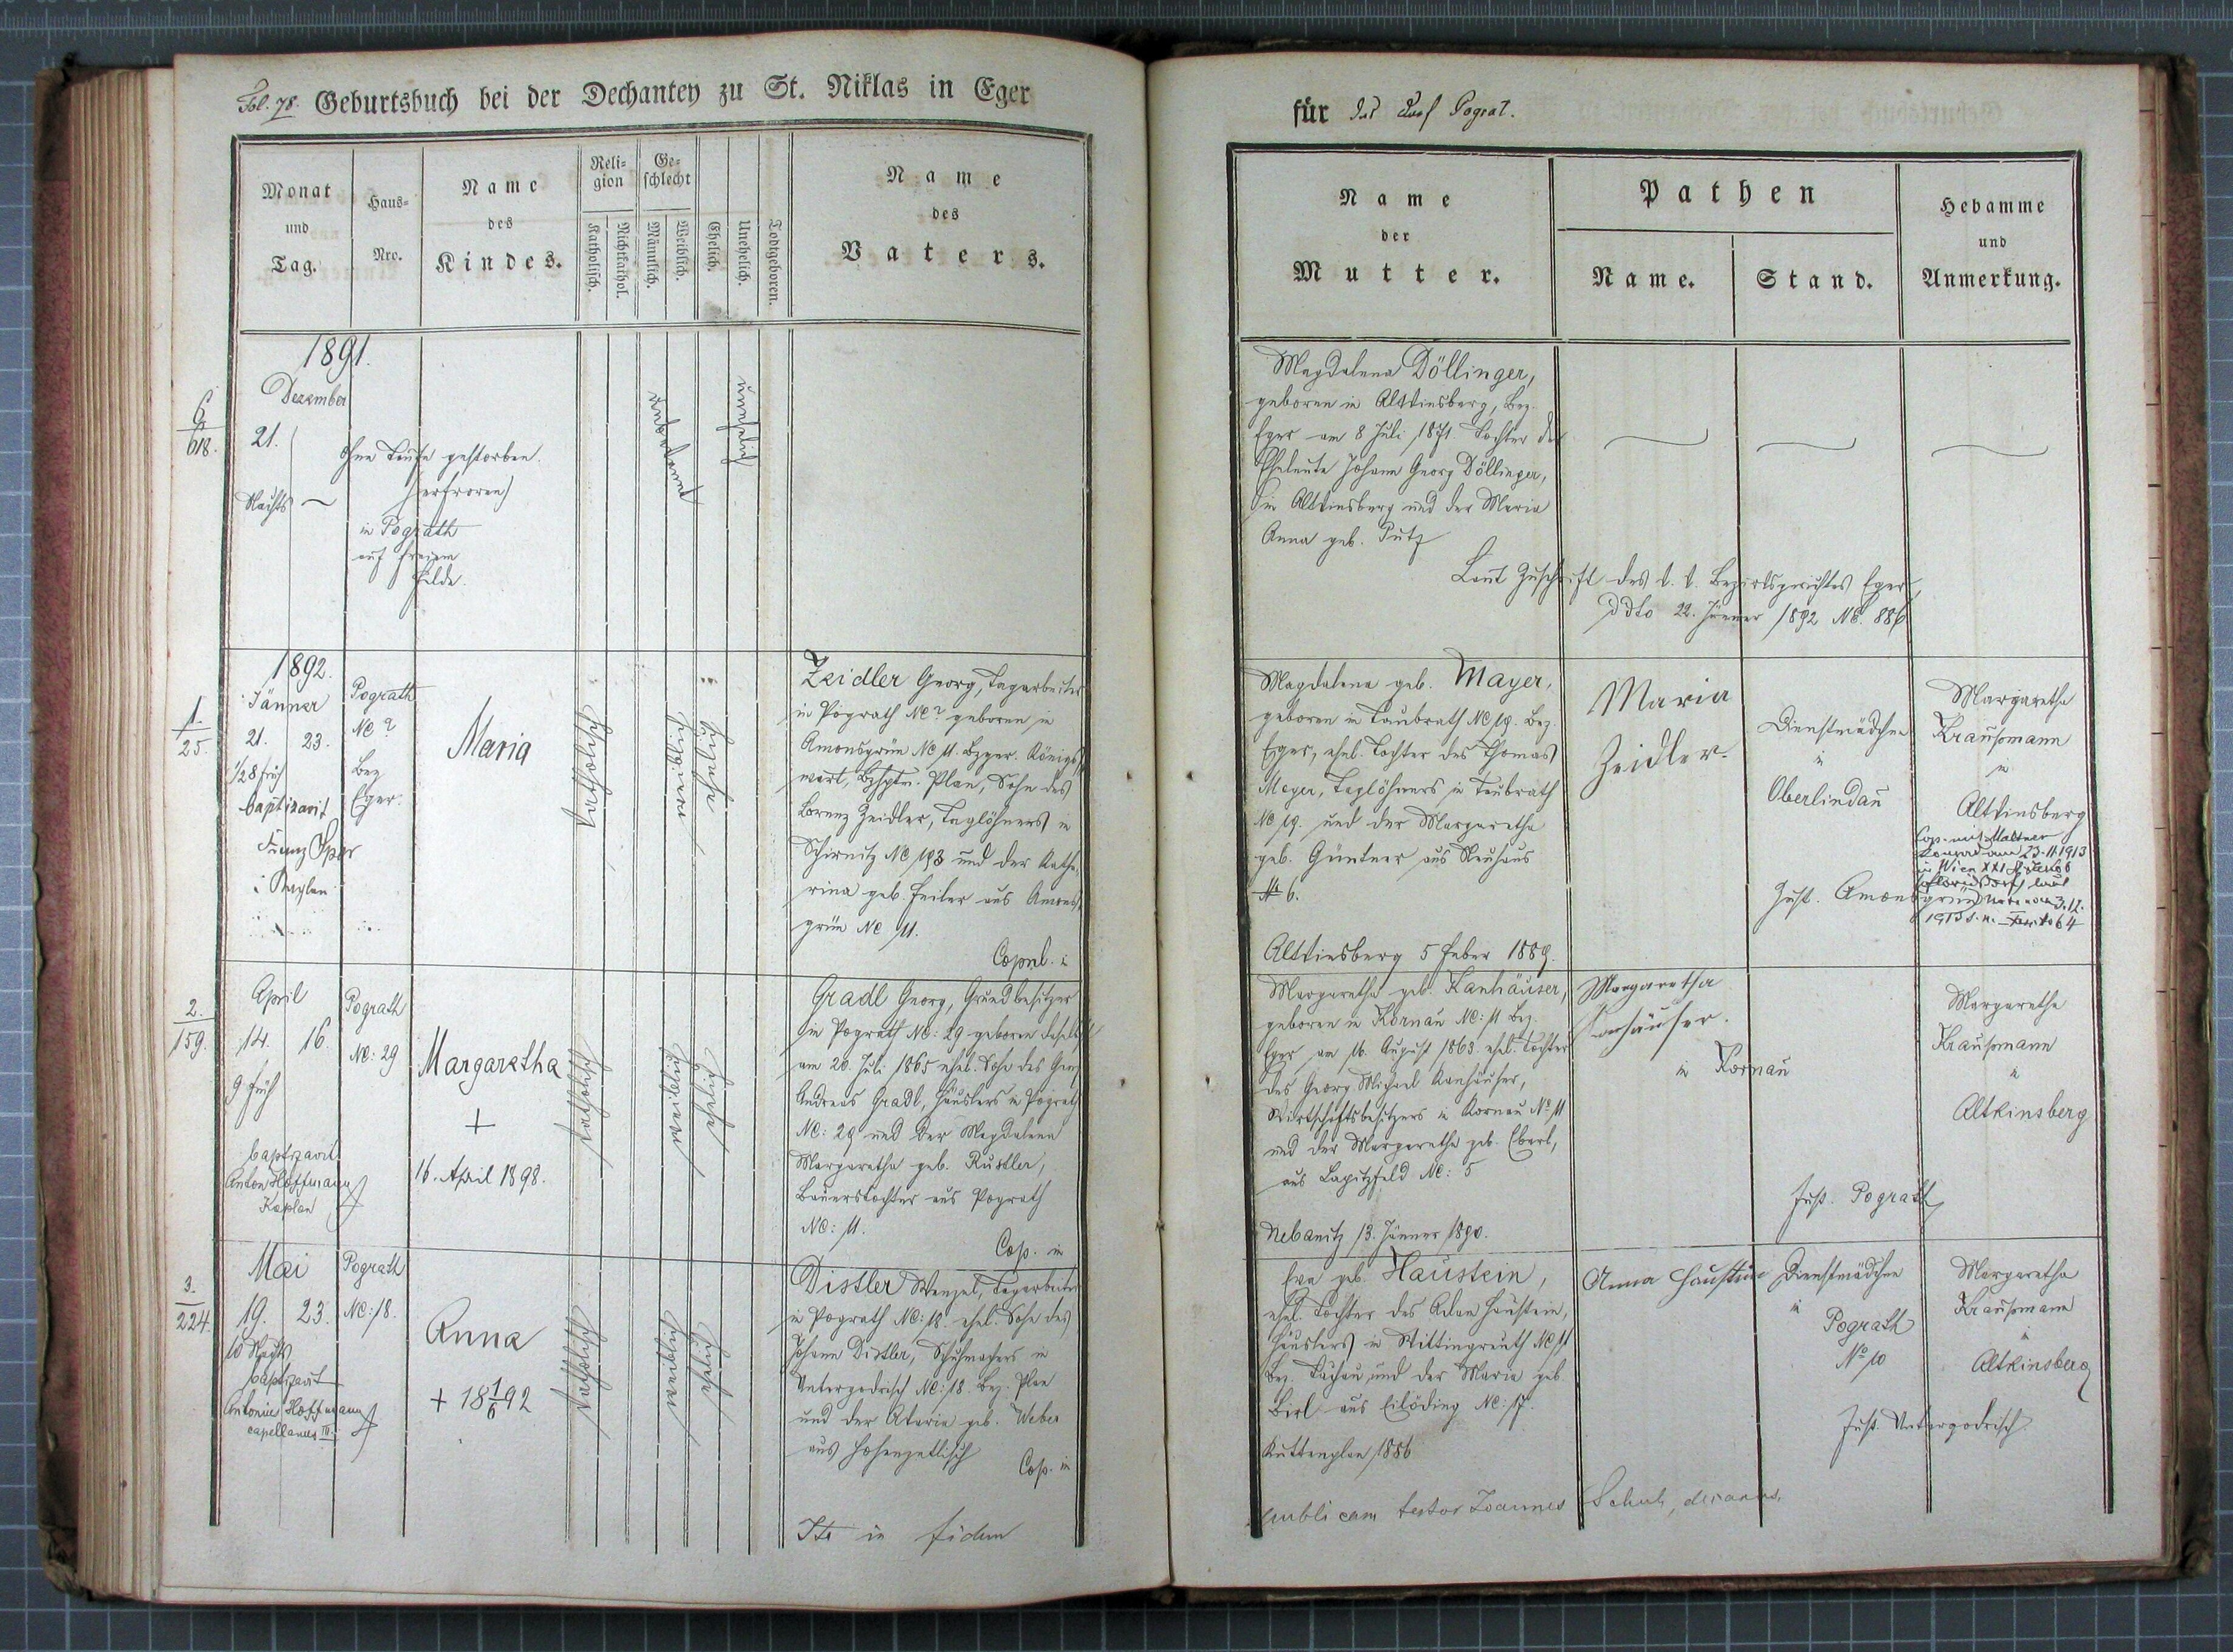 Fol. 78. Geburtsbuch bei der Dechantey zu St. Niklas in Eger
Monat
und
Tag.
Haus-
Nro.
Name
des
Kindes.
Reli-
gion
Katholisch.
Nichtkathol.
Ge-
schlecht
Männlich.
Weiblich.
Ehelich.
Unehelich.
Todtgeboren.
Name
des
Vaters.
1891.
Dezember
6
618.
21.
Nachts
ohne Taufe gestorben.
(erfroren)
in Pograth
auf freiem
Felde.
unbekannt
unehelich
1892.
Jänner
1.
25.
21. 23.
1/28 früh
baptizavit
Franz
Kaplan
Pograth
NC ?
Bez
Eger.
Maria
katholisch
weiblich
ehelich
Zeidler Georg, Tagarbeiter
in Pograth NC ? geboren in
Amonsgrün NC 11. Bzger. Königs-
wart, Bzhptm. Plan, Sohn des
Lorenz Zeidler, Taglöhners in
Schirnitz NC 193 und der Katha-
rina geb. Feiler aus Amons-
grün NC 11.
Copul. in
April
2.
159.
14. 16.
9 früh
baptizavit
Anton Hoffmann
Kaplan
Pograth
NC: 29
Margaretha
+
16. April 1898.
katholisch
weiblich
ehelich
Gradl Georg, Grundbesitzer
in Pograth NC: 29 geboren daselbst
am 20. Juli 1865 ehel. Sohn des Georg
Andreas Gradl, Häuslers in Pograth
NC: 29 und der Magdalena
Margaretha geb. Rustler,
Bauerstochter aus Pograth
NC: 11.
Cop. in
Mai
3.
224.
19. 23.
10 Nachts
baptizavit
Antonius Hoffmann
capellanus III.
Pograth
NC: 18.
Anna
+ 18 1/6 92
katholisch
weiblich
ehelich
Distler Wenzel, Tagarbeiter
in Pograth NC: 18. ehel. Sohn des
Johann Distler, Schuhmachers in
Untergodrisch NC: 18. Bez. Plan
und der Maria geb. Weber
aus Hohenzetlisch
Cop. in
Ita in fidem
für das Dorf Pograt.
Name
der
Mutter.
Pathen
Name.
Stand.
Hebamme
und
Anmerkung.
Magdalena Döllinger,
geboren in Altkinsberg, Bez.
Eger am 8 Juli 1871. Tochter der
Eheleute Johann Georg Döllinger,
in Altkinsberg und der Maria
Anna geb. Putz
Laut Zuschrift des k. k. Bezirksgerichtes Eger,
ddto 22. Jänner 1892 NE. 886
Magdalena geb. Mayer,
geboren in Taubrath NC 19. Bez.
Eger, ehel. Tochter des Thomas
Mayer, Taglöhners in Taubrath
NC 19. und der Margaretha
geb. Güntner aus Neuhaus
N 6.
Altkinsberg 5 Feber 1889.
Maria
Zeidler.
Dienstmädchen
in
Oberlindau
Zust. Amonsgrün
Margaretha
Kraussmann
in
Altkinsberg
Cop. mit Maltner
am 23.11.1913
in Wien XXI
Floridsdorf laut
Note vom 3.12.
1913
Margaretha geb. Kanhäuser,
geboren in Kornau NC: 11 Bez.
Eger am 16. August 1863. ehel. Tochter
des Georg Michael Kanhäuser,
Wirtschaftsbesitzers in Kornau No 11
und der Margaretha geb. Eberl,
aus Lapitzfeld NC: 5
Nebanitz 13. Jänner 1890.
Margaretha
Kanhäuser.
in Kornau
Zust. Pograth
Margaretha
Kraussmann
in
Altkinsberg
Eva geb. Haustein,
ehel. Tochter des Adam Haustein,
Häuslers in Wittingreuth NC 11
Bez. Tachau und der Maria geb.
Birl aus Eilöding NC: 17.
Kuttenplan 1886
Anna Haustein
Dienstmädchen
in
Pograth
No 10
Zust. Untergodrisch
Margaretha
Kraussmann
in
Altkinsberg
publicam testor Joannes Schuh, decanus.